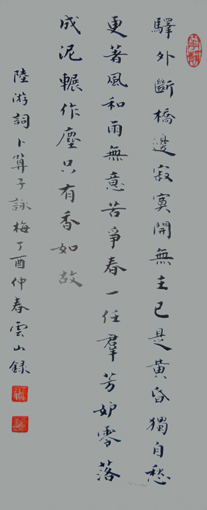 驛外斷橋邊寂寞開無主已是黃昏獨自愁
更著風和雨無意苦爭春一任羣芳妒零落
成泥輾作塵只有香如故
陸游詞卜算子詠梅丁酉仲春雲山錄